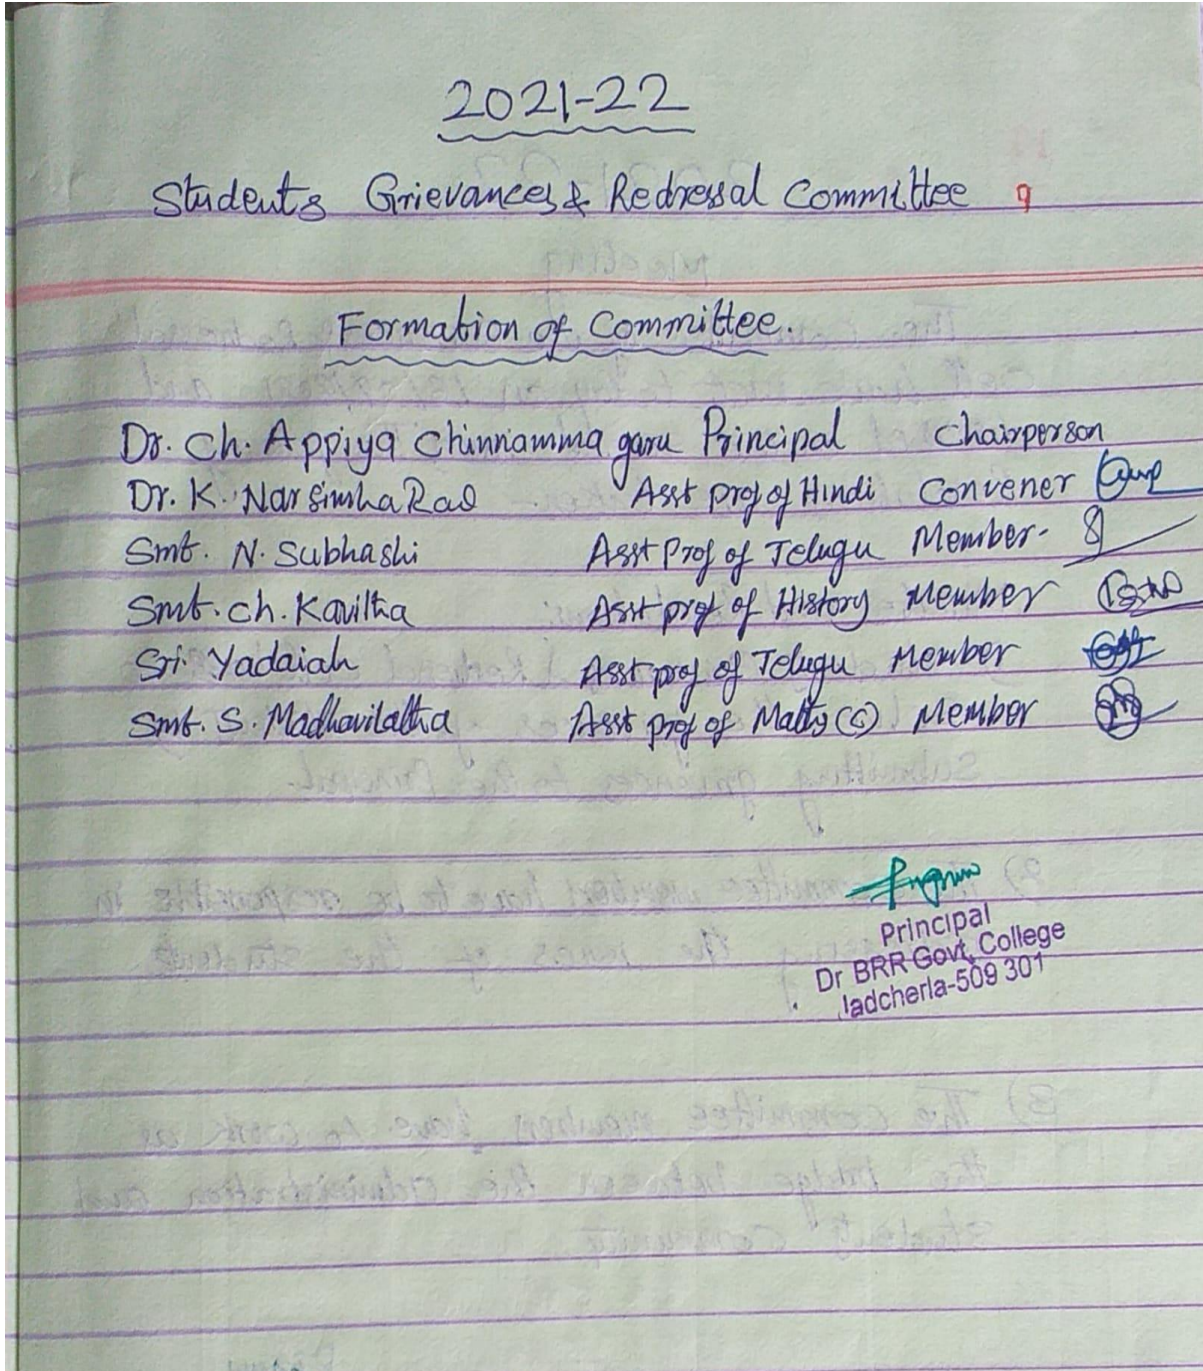 2021-22
Students Grievances & Redressal Committee 9
Formation of Committee.
Dr. Ch. Appiya Chinnamma garu Principal Chairperson
Dr. K. Narsimha Rao Asst prof of Hindi Convener
Smt. N. Subhashi Asst Prof of Telugu Member-
Smt. ch. Kavitha Asst prof of History Member
Sri. Yadaiah Asst prof of Telugu Member
Smt. S. Madhavilatha Asst prof of Maths (c) Member
Principal
Dr BRR Govt. College
Jadcherla-509 301